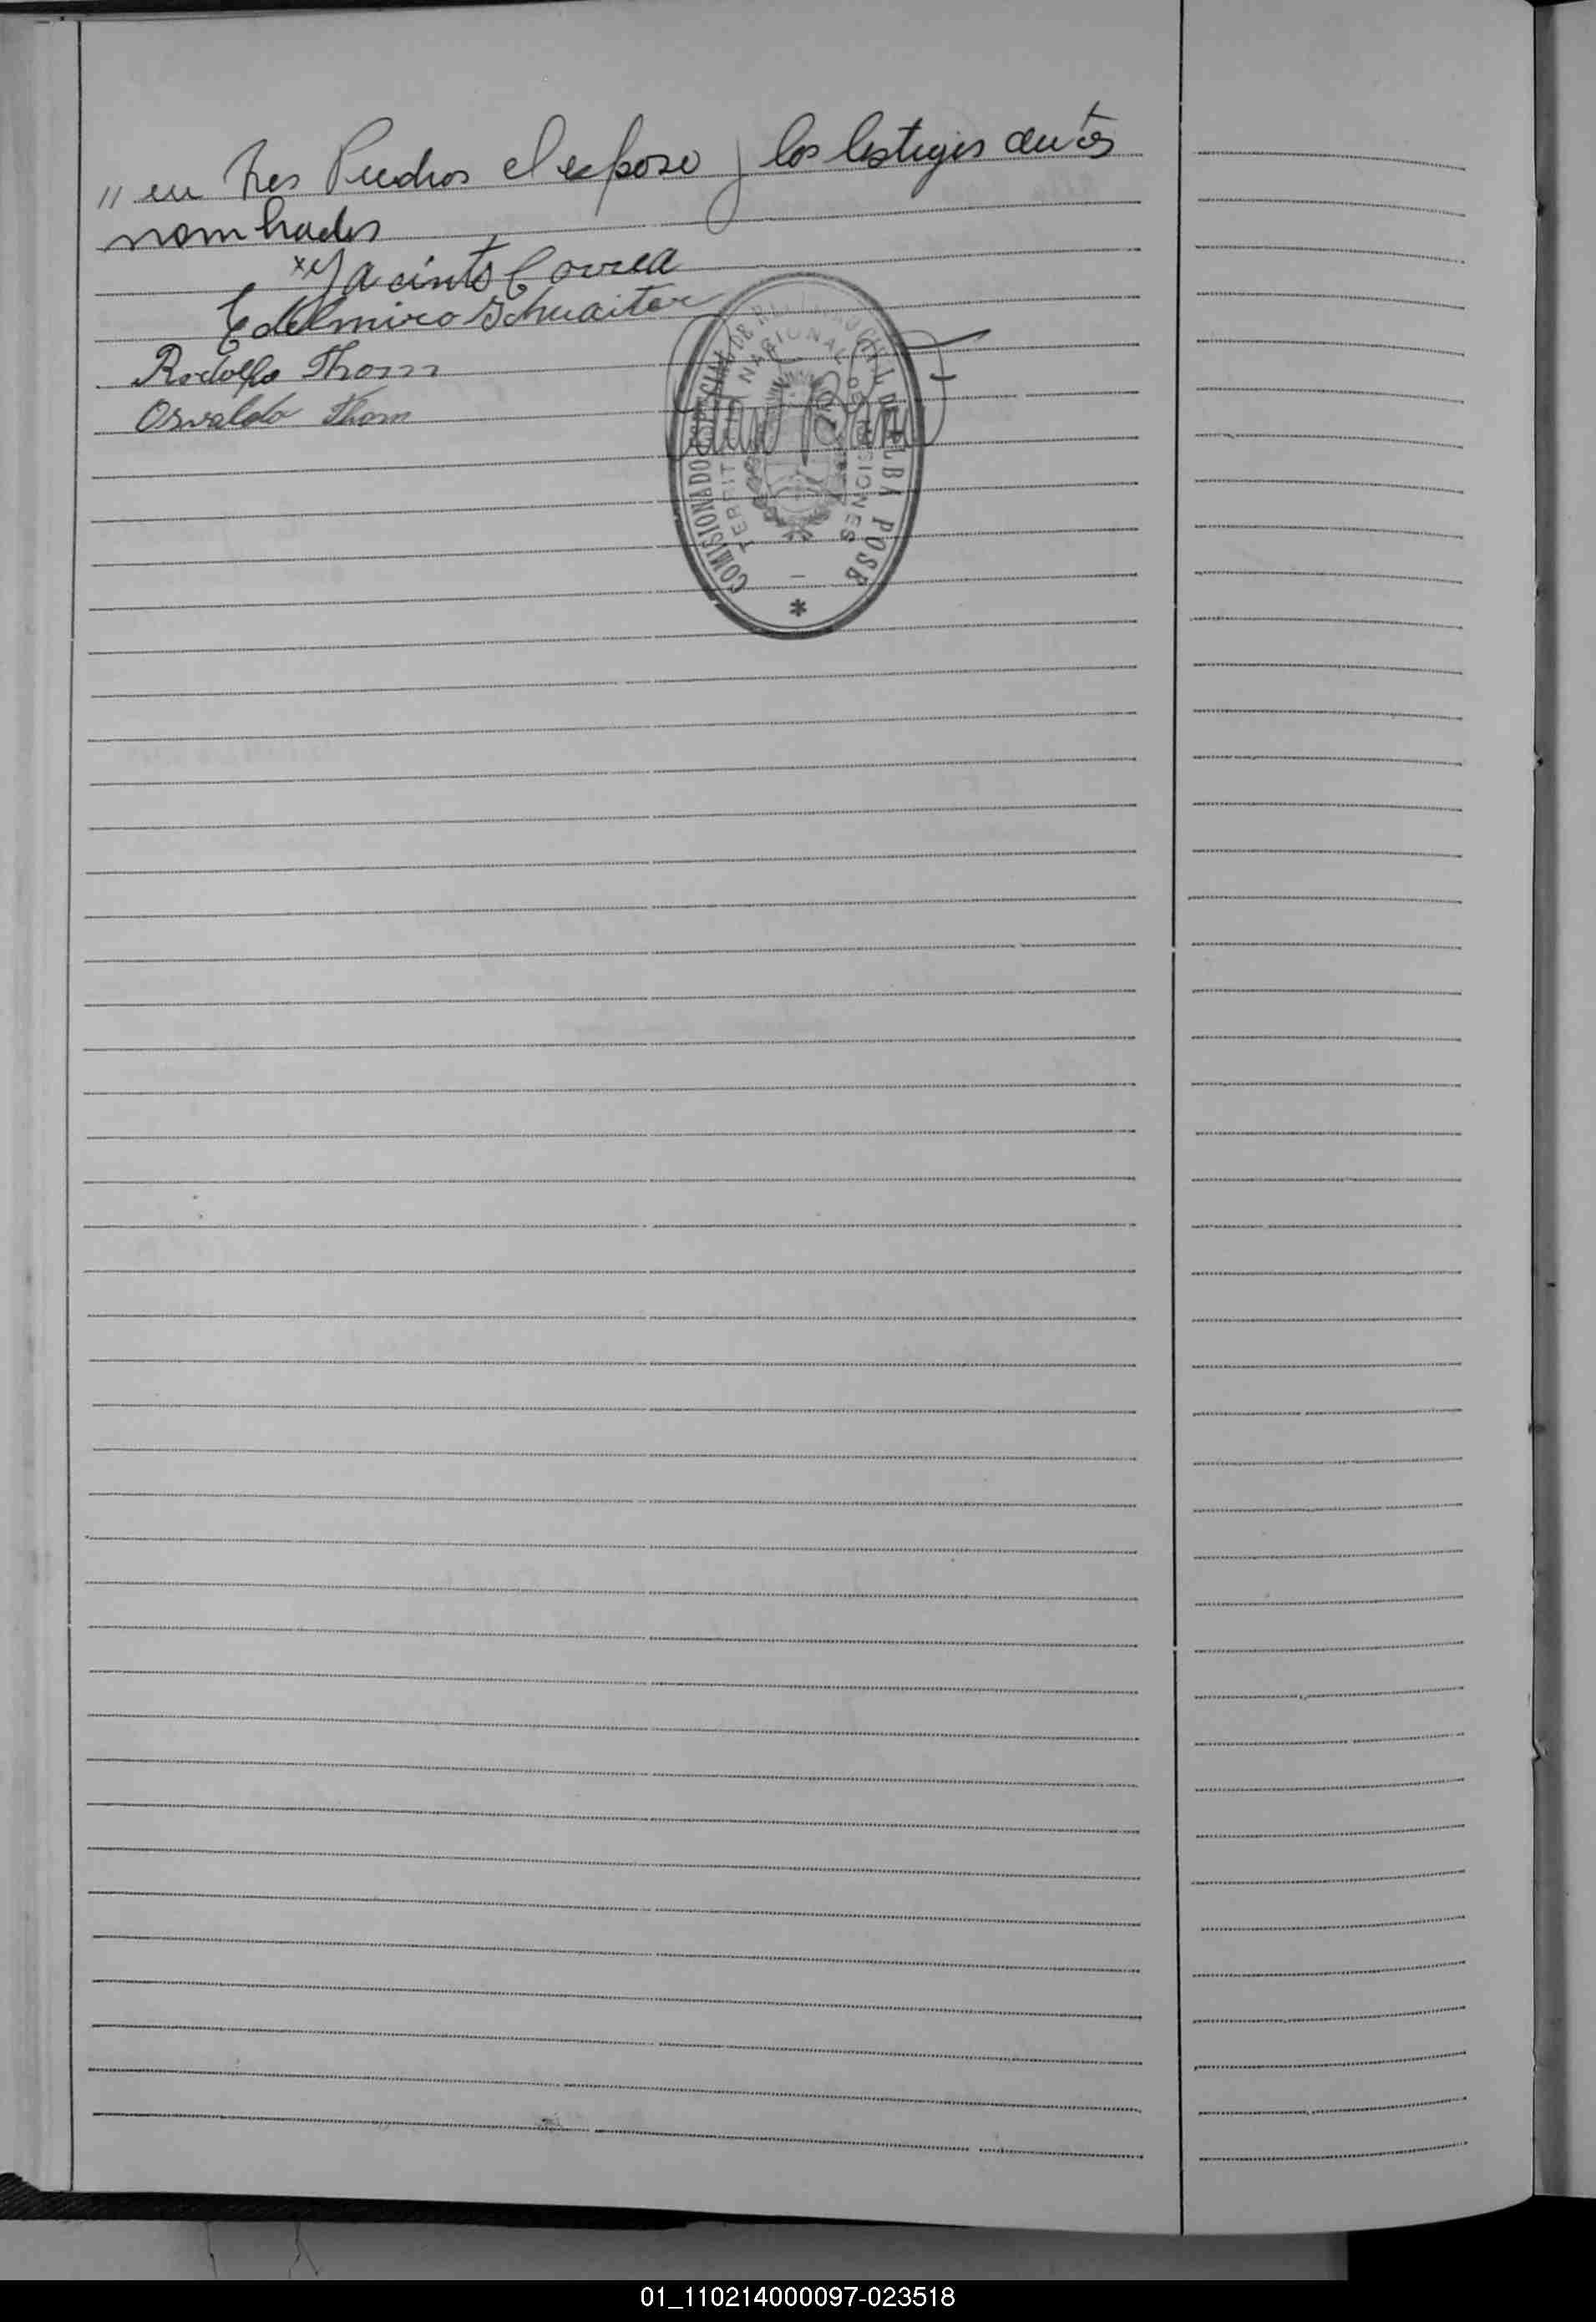 " en tres Piedras el esposo y los testigos antes
nombrados
x Jacinto Correa
Edelmiro Schuaiter
Rodolfo Thom
Osvaldo Thom
COMISIONADO ESPECIAL DE CIVIL DE ALBA POSE
TERRIT NACIONAL DE MISIONES
01_110214000097-023518